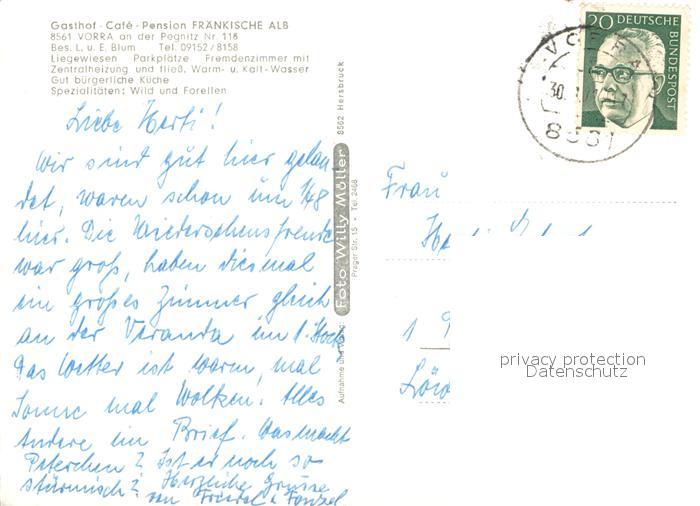 Gasthof - Café - Pension FRÄNKISCHE ALB
8561 VORRA an der Pegnitz Nr. 116
Bes. L. u. E. Blum Tel. 09152/8158
Liegewiesen Parkplätze Fremdenzimmer mit
Zentralheizung und fließ. Warm- u. Kalt-Wasser
Gut bürgerliche Küche
Spezialitäten: Wild und Forellen
Liebe Herti!
Wir sind gut hier gelan
det, waren schon um 1/48
hier. Die Wiedersehensfreude
war groß, haben diesmal
ein großes Zimmer gleich
an der Veranda im 1. Stock
Das Wetter ist warm, mal
Sonne mal Wolken. Alles
Andere im Brief. Was macht
Peterchen? Ist er noch so
stürmisch? Herzliche Grüsse
von
Aufnahme und Verlag:
Foto Willy Müller
8562 Hersbruck
Prager Str. 15 • Tel. 2468
20 DEUTSCHE
BUNDESPOST
30.
8561
Frau
1
privacy protection
Datenschutz